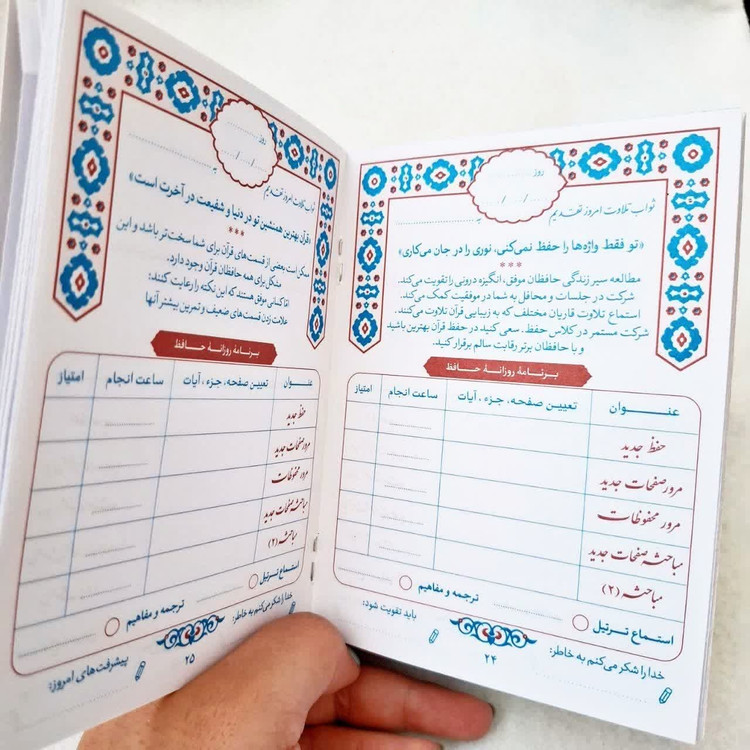 روز
.../.../...
ثواب تلاوت امروز تقدیم
به
«تو فقط واژه‌ها را حفظ نمی‌کنی، نوری را در جان می‌کاری»
***
مطالعه سیر زندگی حافظان موفق، انگیزه درونی را تقویت می‌کند.
شرکت در جلسات و محافل به شما در موفقیت کمک می‌کند.
استماع تلاوت قاریان مختلف که به زیبایی قرآن تلاوت می‌کنند.
شرکت مستمر در کلاس حفظ. سعی کنید در حفظ قرآن بهترین باشید
و با حافظان برتر رقابت سالم برقرار کنید.
برنامه روزانهٔ حافظ
عنوان تعیین صفحه، جزء، آیات ساعت انجام امتیاز
حفظ جدید
مرور صفحات جدید
مرور محفوظات
مباحثه صفحات جدید
مباحثه (۲)
استماع ترتیل ترجمه و مفاهیم
خدا را شکر می‌کنم به خاطر: باید تقویت شود:
۲۴
روز
.../.../...
ثواب تلاوت امروز تقدیم
به
«قرآن بهترین همنشین تو در دنیا و شفیعت در آخرت است»
***
ممکن است بعضی از قسمت‌های قرآن برای شما سخت‌تر باشد و این
مشکل برای همه حافظان قرآن وجود دارد.
اما کسانی موفق هستند که این نکته را رعایت کنند:
علامت زدن قسمت‌های ضعیف و تمرین بیشتر آنها
برنامه روزانهٔ حافظ
عنوان تعیین صفحه، جزء، آیات ساعت انجام امتیاز
حفظ جدید
مرور صفحات جدید
مرور محفوظات
مباحثه صفحات جدید
مباحثه (۲)
استماع ترتیل ترجمه و مفاهیم
خدا را شکر می‌کنم به خاطر: پیشرفت‌های امروز:
۲۵